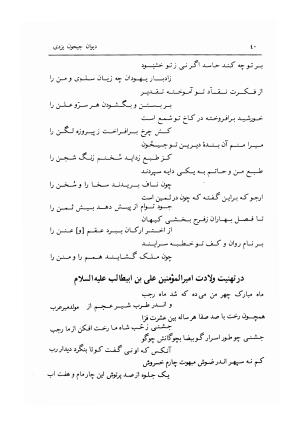 ۴۰
دیوان جیحون یزدی
بر تو چه کند حاسد اگر نی ز تو خشنود
زادبار یهودان چه زیان سلوی و من را
از فکرت نقاد تو آموخته تقدیر
بر بستن و بگشودن هر سرّ و علن را
خورشید برافروخته در کاخ تو شمع است
کش چرخ برافراخت ز پیروزه لگن را
میرا منم آن بندهٔ دیرین تو جیحون
کز طبع زداید سخنم زنگ شجن را
طبع من و حاتم به یکی دایه سپردند
چون ناف بریدند سخا را و سخن را
ارجو که براین گفته که چون در ثمین است
جود توام از پیش دهد بیش ثمن را
تا فصل بهاران ز فرح بخشی کیهان
از اختر ارکان ببرد عقم [و] عنن را
بر نام روان و کف تو خطبه سرایند
چون ملک گشایند همم را و منن را
در تهنیت ولادت امیرالمؤمنین علی بن ابیطالب علیه‌السلام
ماه مبارک چهر من می ده که شد ماه رجب
و اندر طرب شیر عجم از مولد میر عرب
همچون رخت با صد صفا هر ساله بین عشرت فزا
جشنی ز عشب شاه ما رخت افکن از ما رجب
جشنی چو طور اسرار گو بیضا بچوگانش چو گو
آنکس که اونی گفت کو تا بنگرد دیدار رب
کم نه سپهر اندر ضوش مبهوت چارم خسروش
یک جلوه از صد پرتوش این چار مام و هفت اب